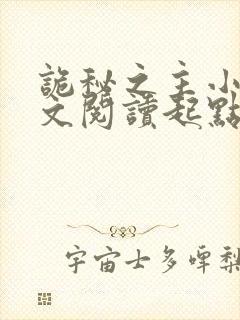 詭秘之主小
文閱讀起點
宇宙士多啤梨